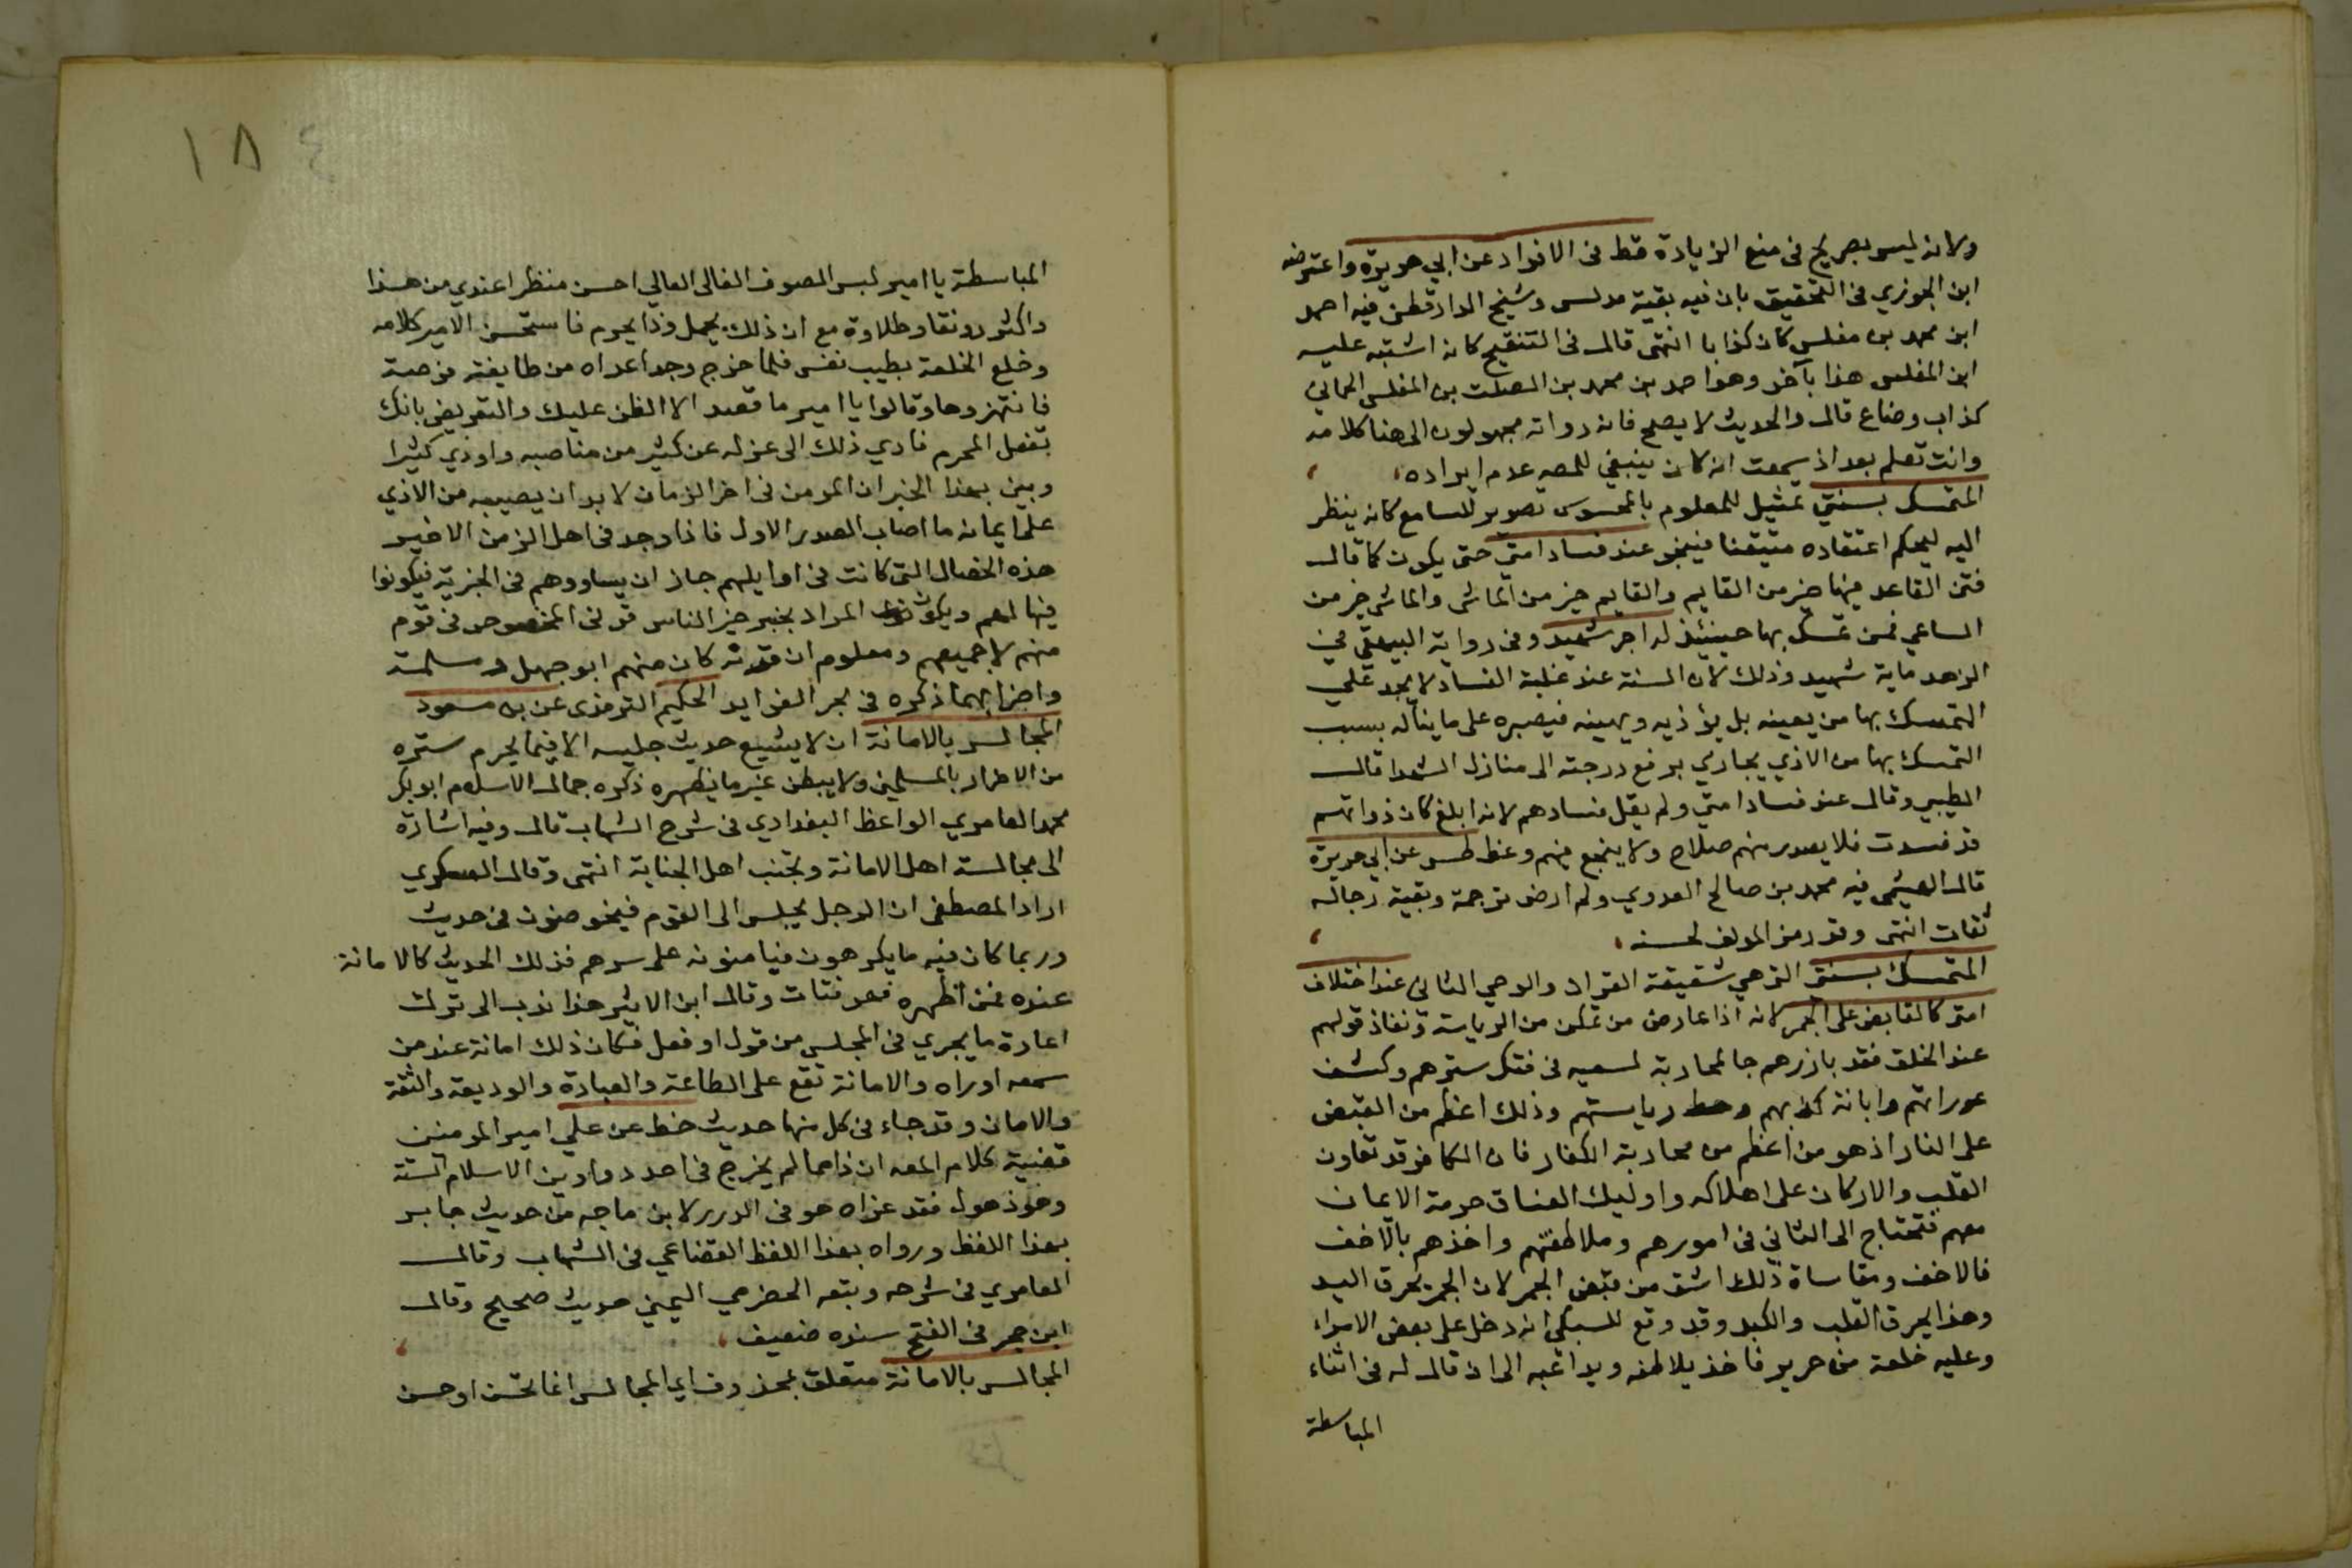 ولانه ليس بصريح في منع الزيادة فقط في الافراد عن ابي هريرة واعترضه
ابن الجوزي في التحقيق بان فيه بقية مدلس وشيخ الدارقطني فيه احمد
ابن محمد بن مغلس كان كذابا انتهى قال في التنقيح كانه اشتبه عليه
ابن المغلس هذا بآخر وهو احمد بن محمد بن الصلت بن المغلس الحماني
كذاب وضاع قال والحديث لا يصح فانه رواته مجهولون الى هنا كلامه
وانت تعلم بعد اذ سمعت انه كان ينبغي للمصه عدم ايراده
المتمسك بسنتي تمثيل للمعلوم بالمحسوس تصوير للسامع كانه ينظر
اليه ليحكم اعتقاده متيقنا فينجو عند فساد امتي حتى يكون كما قال
فتن القاعد فيها خير من القايم والقايم خير من الماشي والماشي خير من
الساعي فمن تمسك بها حينئذ له اجر شهيد وفي رواية البيهقي في
الزهد ماية شهيد وذلك لان السنة عند غلبة الفساد لا يجد على
التمسك بها من يعينه بل يؤذيه ويهينه فيصبره على ما يناله بسبب
التمسك بها من الاذي يجازي برفع درجته الى منازل الشهدا قال
الطيبي وقال عند فساد امتي ولم يقل فسادهم لانه ابلغ كان ذواتهم
قد فسدت فلا يصدر منهم صلاح ولا ينجع فيهم وعظ طس عن ابي هريرة
قال الهيثمي فيه محمد بن صالح العدوي ولم ار من ترجمة وبقية رجاله
ثقات انتهى وقد رمز المولف لحسنه
المتمسك بسنتي التي هي شقيقة القران والوحي الثاني عند اختلاف
امتي كالقابض على الجمر لانه اذا عارض من تمكن من الرياسة ونفاذ قولهم
عند الخلق فقد بارزهم بالمحاربة لسعيه في هتك سترهم وكشف
عوراتهم وابانة كذبهم وحط رياستهم وذلك اعظم من القبض
على النار اذ هو من اعظم من محاربة الكفار فان الكافر قد تعاون
القلب والاركان على اهلاكه واوليك الفساق حرمة الايمان
معهم فتحتاج الى التاني في امورهم وملاطفتهم واخذهم بالاخف
فالاخف ومقاساة ذلك اشق من قبض الجمر لان الجمر يحرق اليد
وهذا يحرق القلب والكبد وقد وقع للسبكي انه دخل على بعض الامراء
وعليه خلعة من حرير فاخذ يلاطفه ويداعبه الى ان قال له في اثناء
المباسطة
١٨
المباسطة يا امير لبس الصوف الغالي العالي احسن منظرا عندي من هذا
واكثر رونقا وطلاوة مع ان ذلك يحل وذا يحرم فاستحسن الامير كلامه
وخلع الخلعة بطيب نفس فلما خرج وجد اعداه من طايفته فرصة
فانتهزوها وقالوا يا امير ما قصد الا الظن عليك والتعريض بانك
تفعل المحرم فادي ذلك الى عزله عن كثير من مناصبه واوذي كثيرا
وبين بهذا الخبر ان المومن في اخر الزمان لا بد ان يصيبه من الاذي
على ايمانه ما اصاب الصدر الاول فاذا وجد في اهل الزمن الاخير
هذه الخصال التي كانت في اوايلهم جاز ان يساووهم في الخيرية فيكونوا
فيها لهم ويكون المراد بخبر خير الناس قرني الخصوص في قوم
منهم لا جميعهم ومعلوم ان قرنه كان منهم ابو جهل ومسلمة
واضرابهما ذكره في بحر الفوايد الحكيم الترمذي عن بن مسعود
المجالس بالامانة ان لا يشيع حديث جليسه الا فيما يحرم ستره
من الاضرار بالمسلمين ولا يبطن غير ما يظهره ذكره جمال الاسلام ابو بكر
محمد العامري الواعظ البغدادي في شرح الشهاب قال وفيه اشارة
الى مجالسة اهل الامانة وتجنب اهل الخيانة انتهى وقال العسكري
اراد المصطفى ان الرجل يجلس الى القوم فيخوضون في حديث
وربما كان فيه ما يكرهون فيامنونه على سرهم فذلك الحديث كالامانة
عنده فمن اظهره فهو قتات وقال ابن الاثير هذا ندب الى ترك
اعادة ما يجري في المجلس من قول او فعل فكان ذلك امانة عند من
سمعه او راه والامانة تقع على الطاعة والعبادة والوديعة والثقة
والامان وقد جاء في كل منها حديث خط عن علي امير المومنين
قضية كلام المصه ان ذا مما لم يخرج في احد دواوين الاسلام الستة
وهو ذهول فقد عزاه هو في الدرر لابن ماجه من حديث جابر
بهذا اللفظ ورواه بهذا اللفظ القضاعي في الشهاب وقال
العامري في شرحه وتبعه الحضرمي اليمني حديث صحيح وقال
ابن حجر في الفتح سنده ضعيف
المجالس بالامانة متعلق بمحذوف اي المجالس انما تحسن او حسن